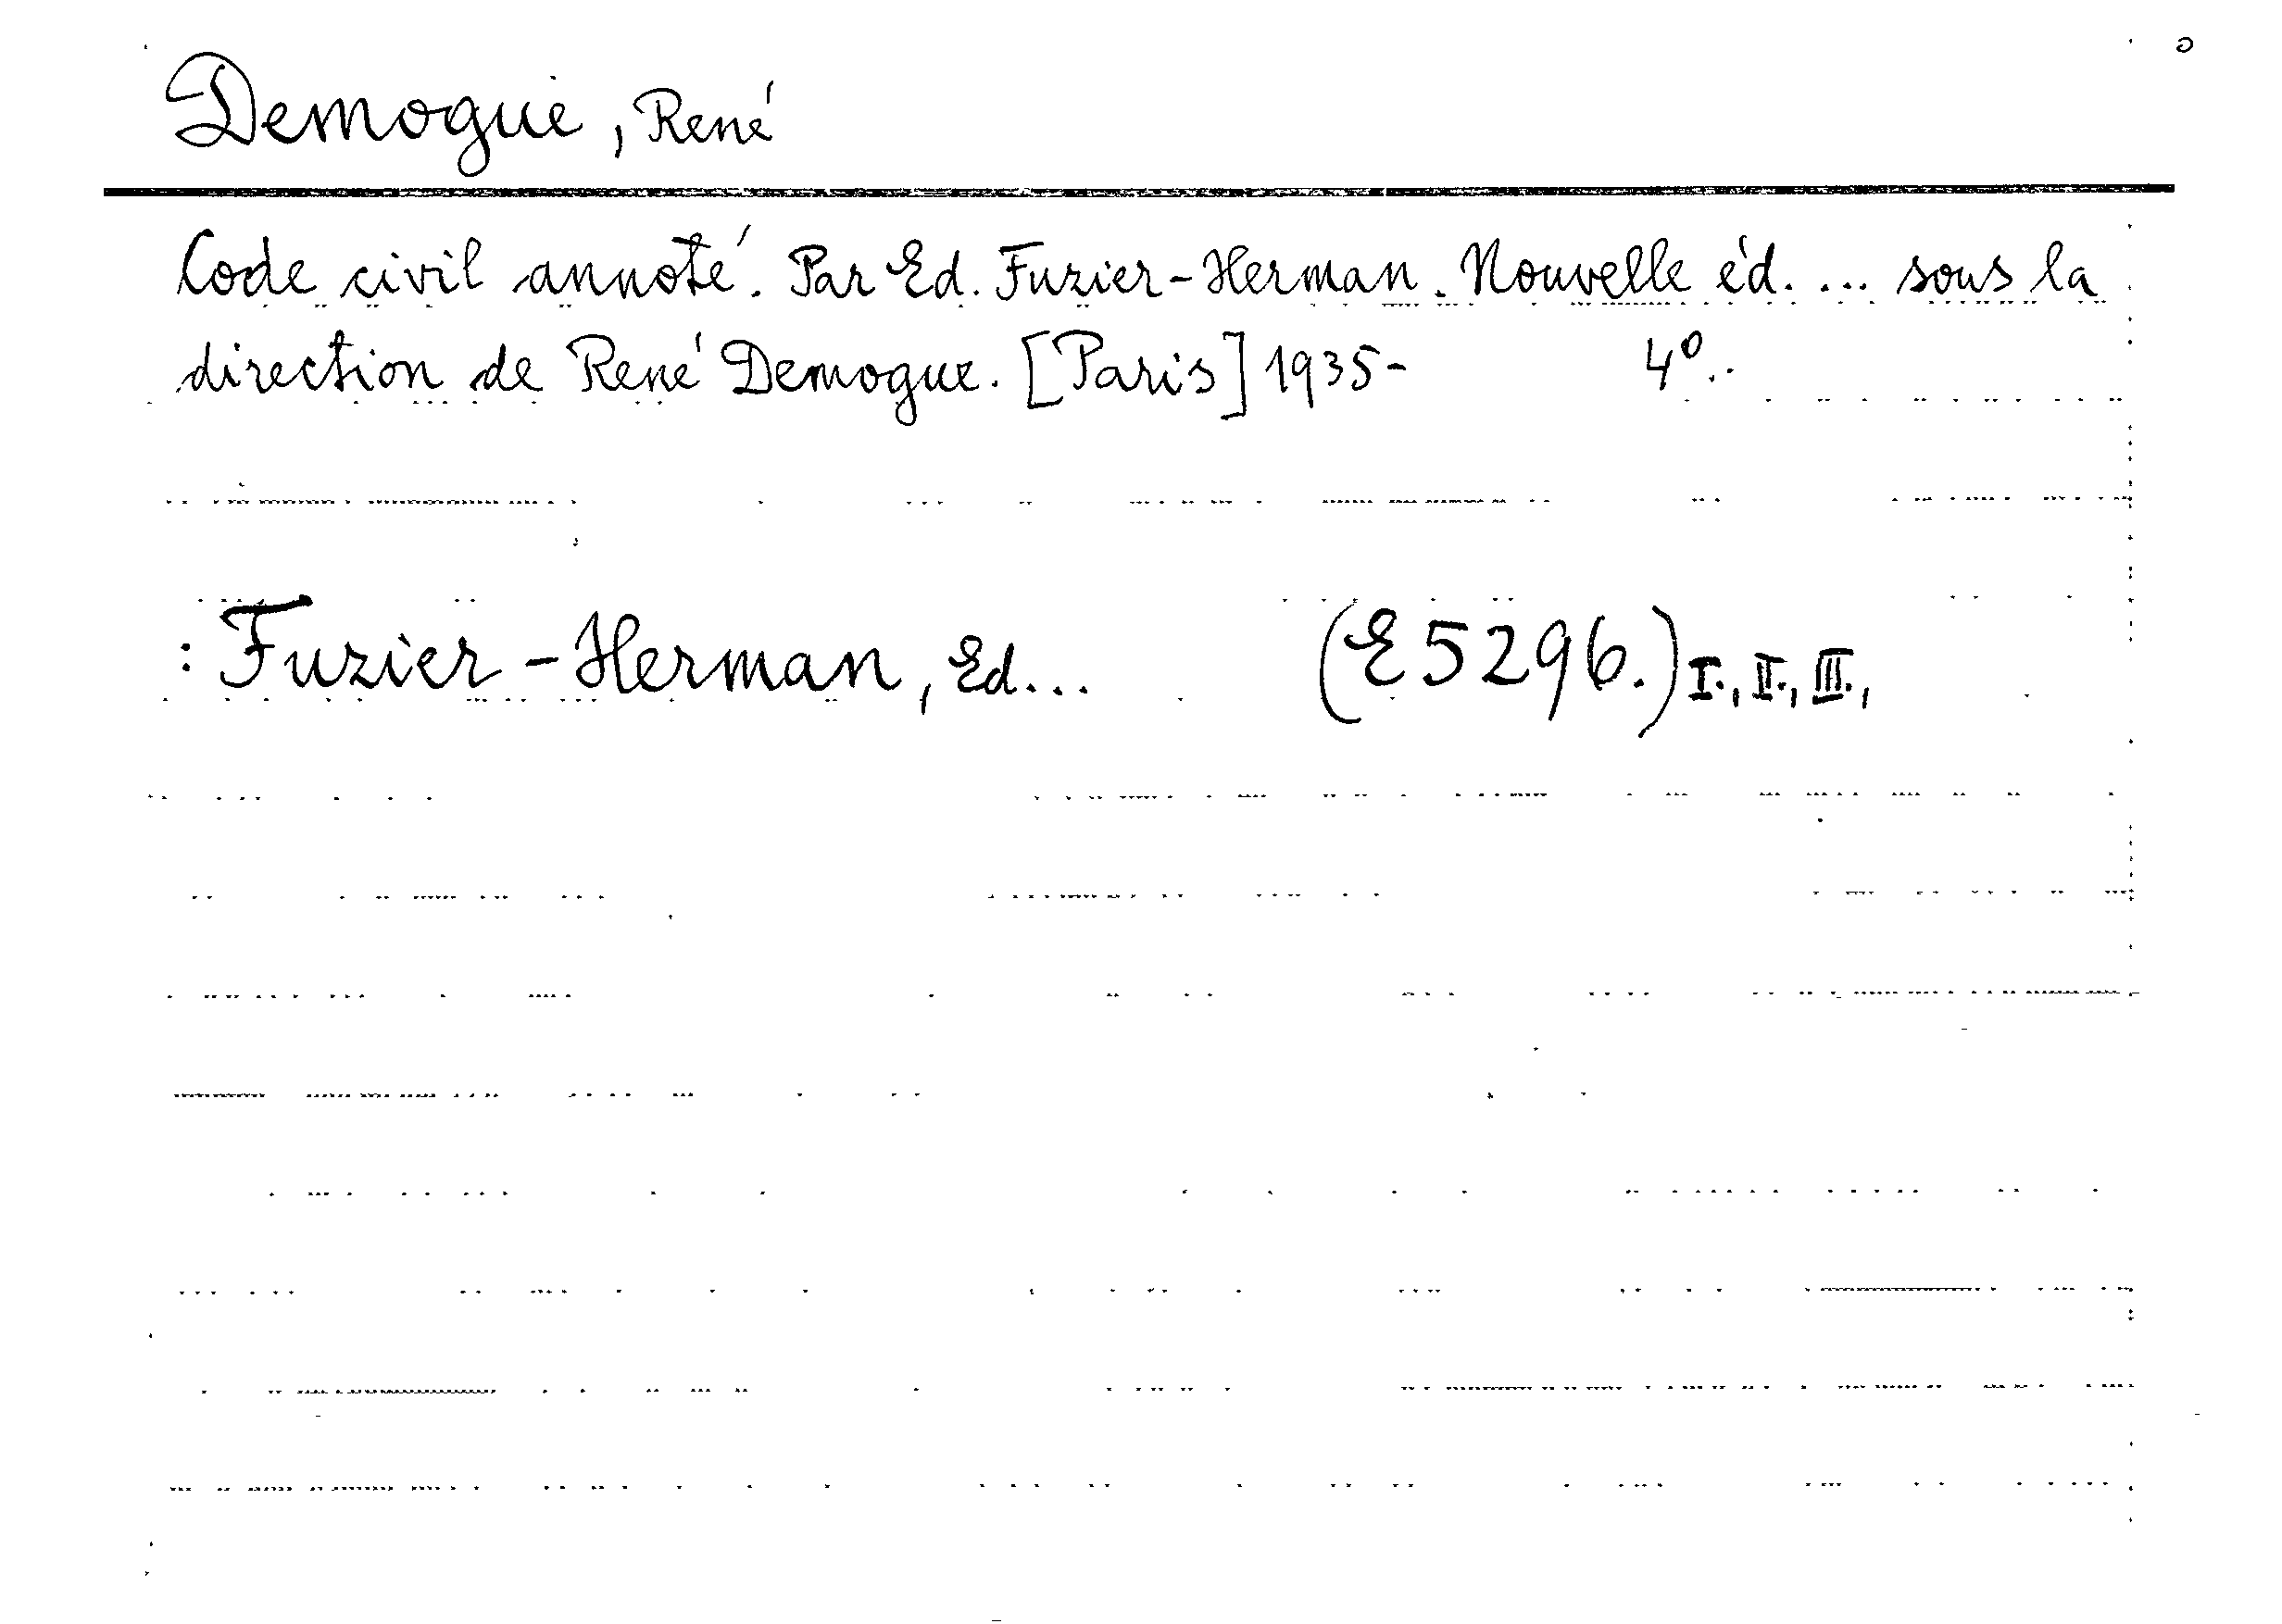 Demogue, René
Code civil annoté. Par Ed. Fuzier-Herman. Nouvelle éd. ... sous la
direction de René Demogue. [Paris] 1935- 4°.
: Fuzier-Herman, Ed... (E 5296.) I., II., III.,